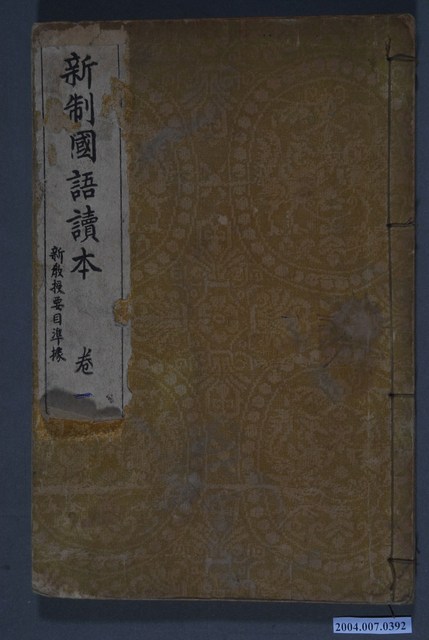 新制國語讀本
新敎授要目準據
卷一
2004.007.0392